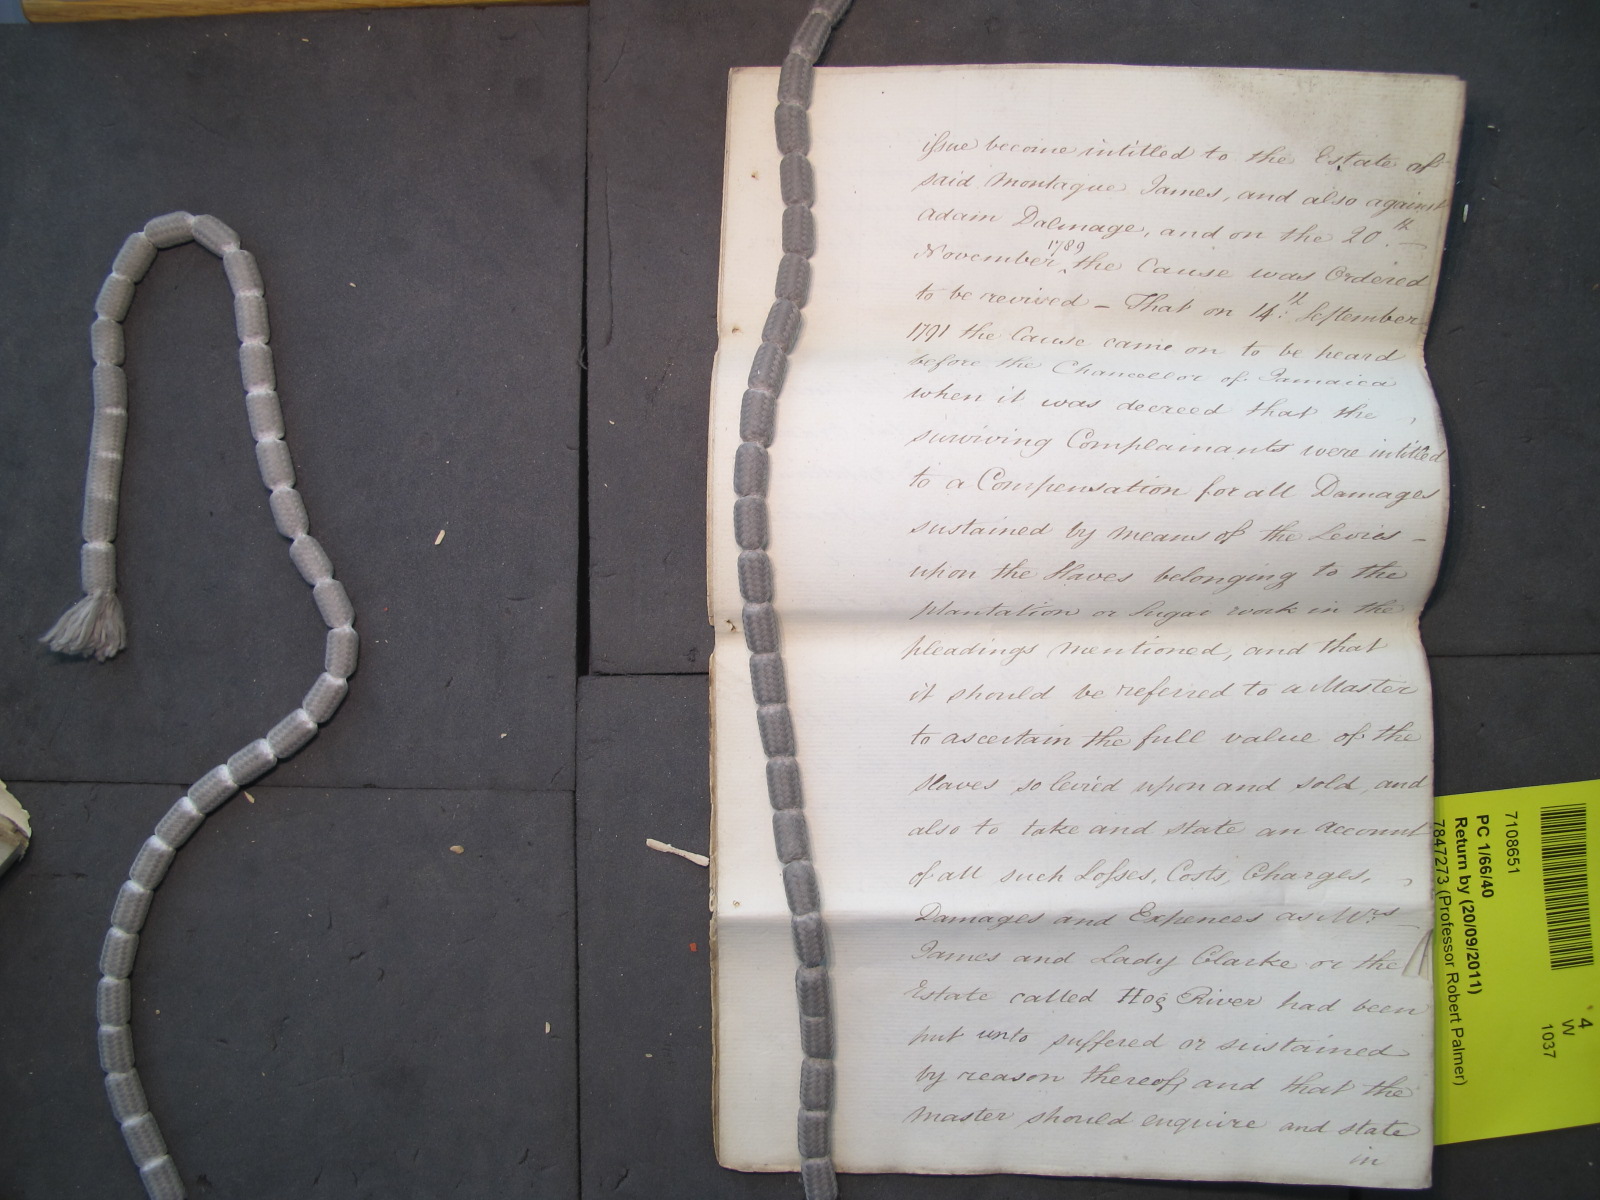 issue become intitled to the Estate of
said Montague James, and also against
Adam Dalmage, and on the 20.th
November 1789 the Cause was Ordered
to be revived – That on 14.th September
1791 the Cause came on to be heard
before the Chancellor of Jamaica
when it was decreed that the
surviving Complainants were intitled
to a Compensation for all Damages
sustained by means of the Levies –
upon the Slaves belonging to the
plantation or Sugar work in the
pleadings mentioned, and that
it should be referred to a Master
to ascertain the full value of the
Slaves so levied upon and sold, and
also to take and state an account
of all such Losses, Costs, Charges,
Damages and Expences as Mrs
James and Lady Clarke or the
Estate called Hog River had been
put unto suffered or sustained
by reason thereof, and that the
Master should enquire and state
in
7108651
PC 1/66/40
Return by (20/09/2011)
7847273 (Professor Robert Palmer)
4
W
1037